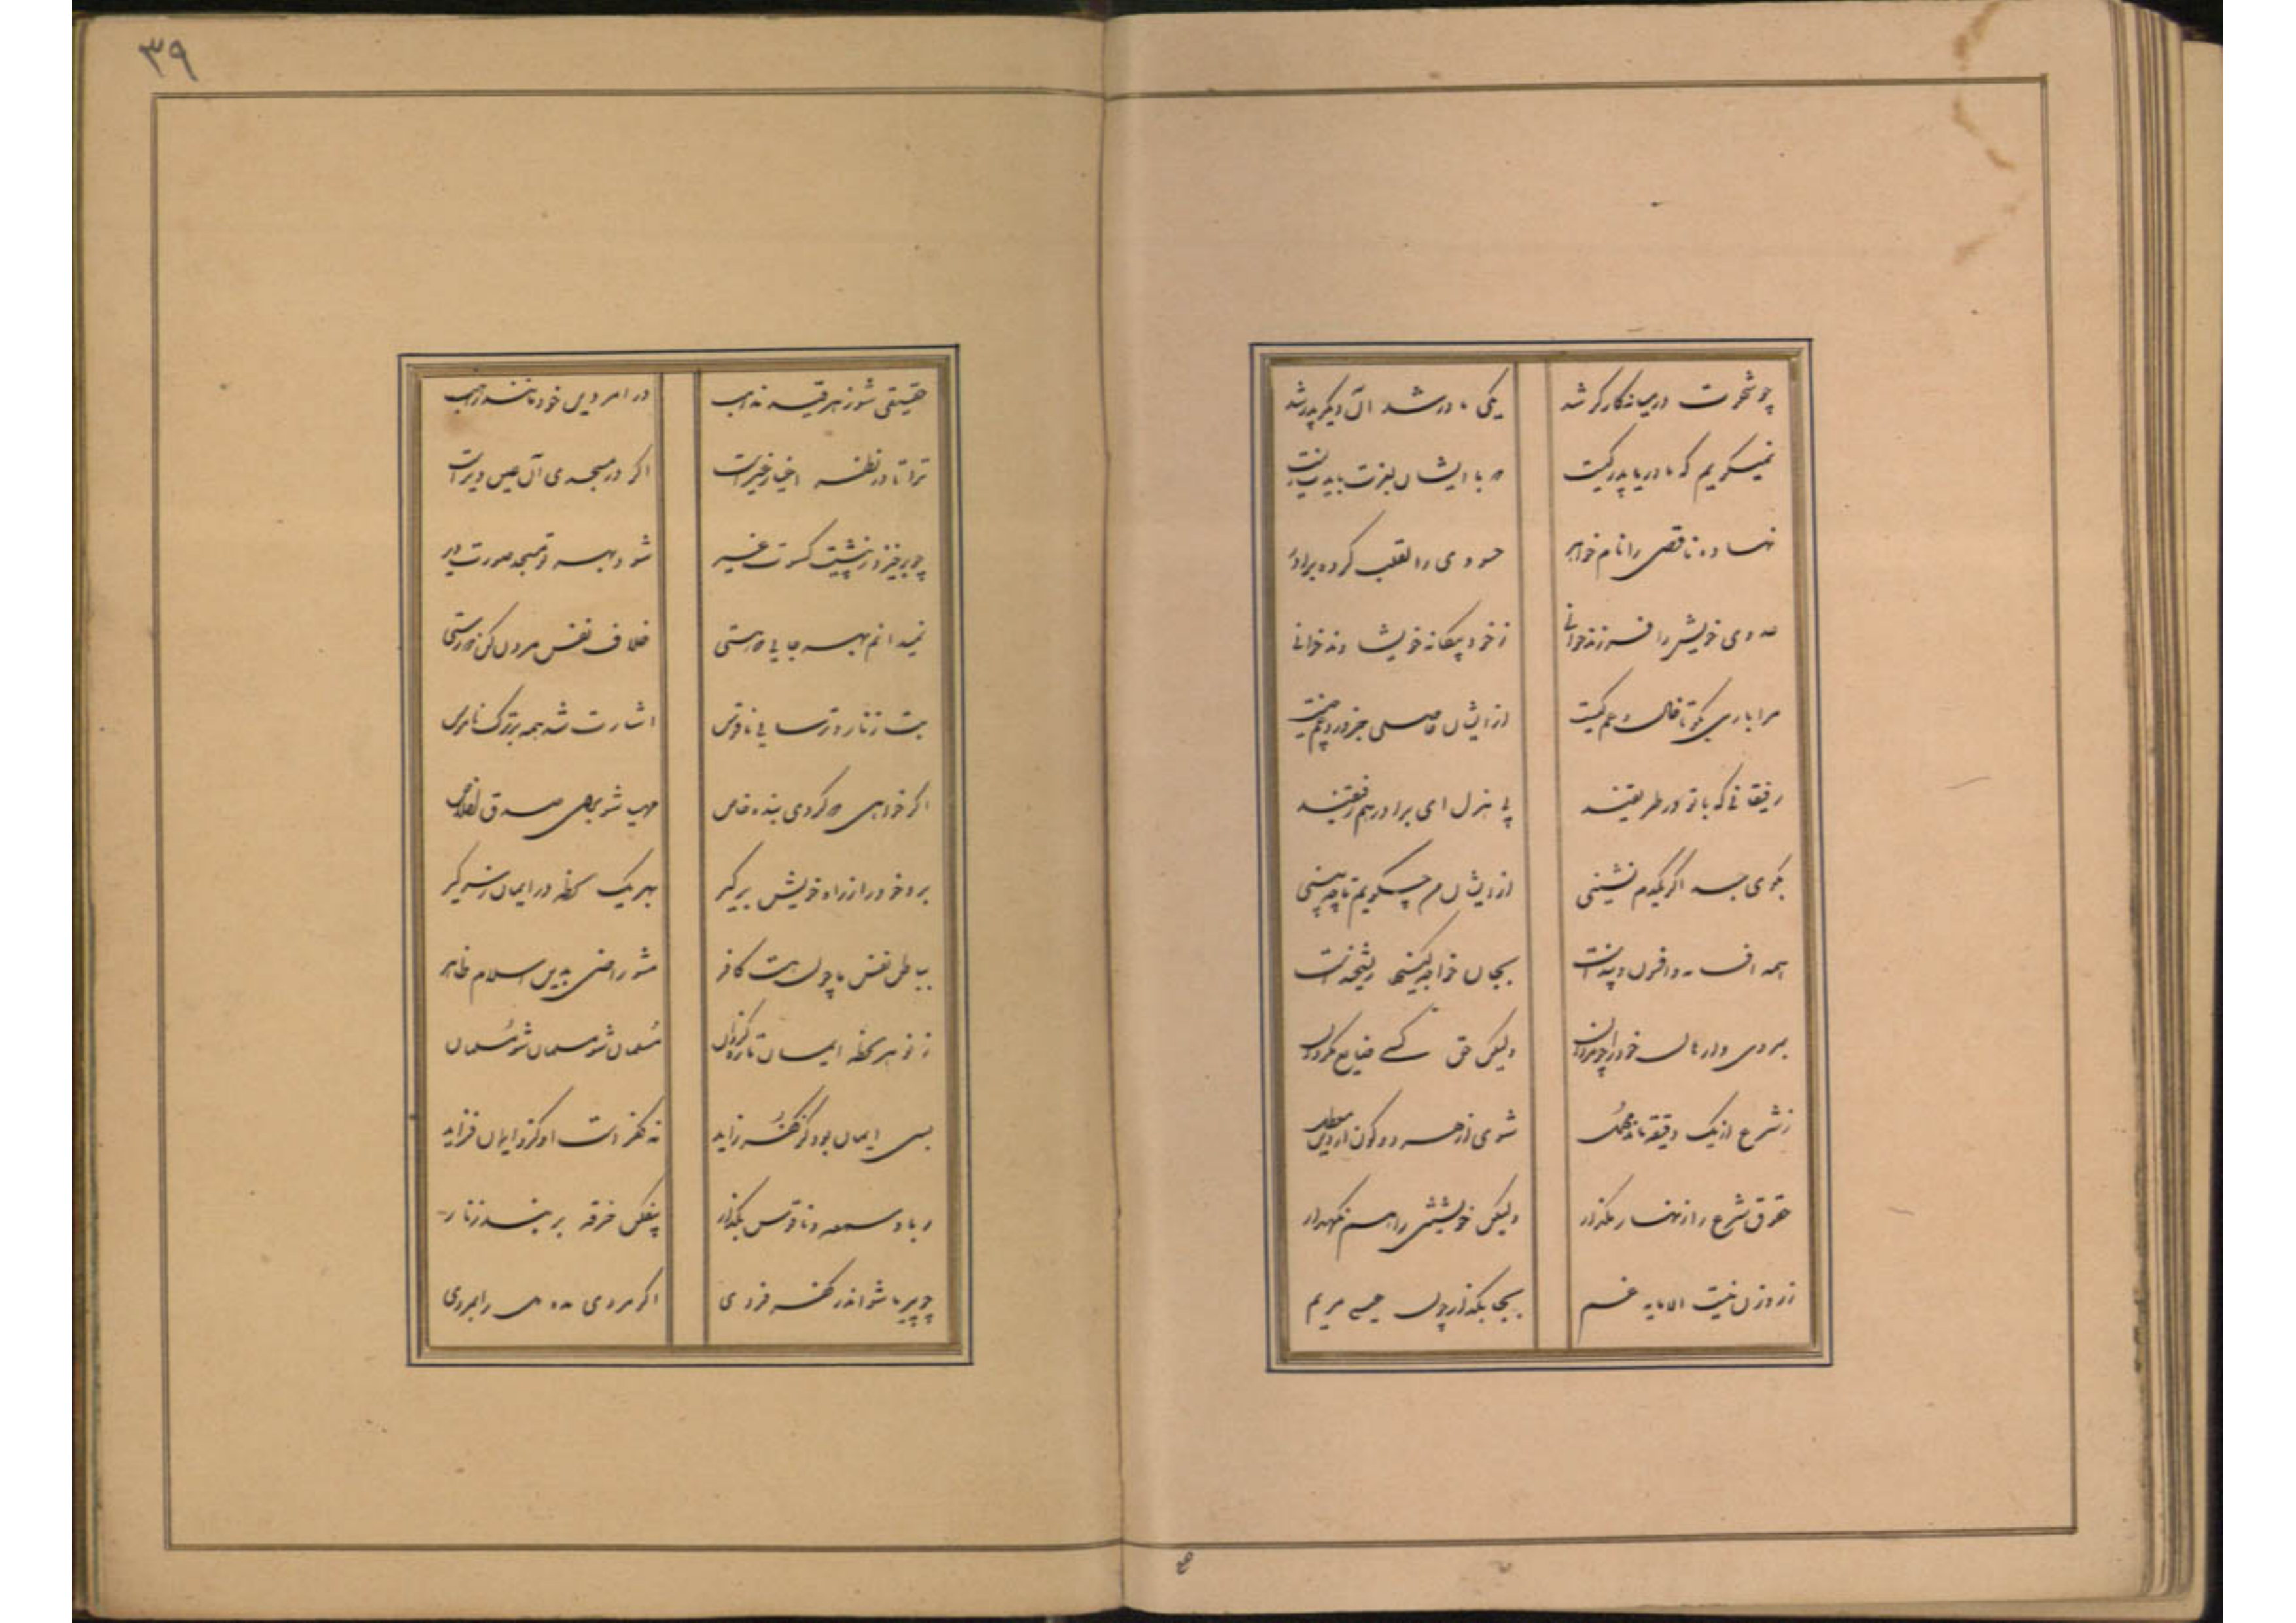 چو شهوت در میانه کارگر شد یکی مادر شد آن دیگر پدر شد
نمیگویم که مادر یا پدر کیست که با ایشان بعزت بایدت زیست
نهاده ناقصی را نام خواهر حسودی را لقب کرده برادر
عدوی خویش را فرزند خوانی ز خود بیگانه خویشاوند خوانی
مرا باری بگو تا خال و عم کیست از ایشان حاصلی جز درد و غم چیست
رفیقانی که با تو در طریقند پی هزل ای برادر هم رفیقند
بکوی جد اگر یکدم نشینی از ایشان من چگویم تا چه بینی
همه افسانه و افسون و بند است بجان خواجه کینها ریشخند است
بمردی وارهان خود را چو مردان ولیکن حق کس ضایع مگردان
ز شرع ار یک دقیقه ماند مهمل شوی از هر دو کون از دین معطل
حقوق شرع را زنهار مگذار ولیکن خویشتن را هم نگهدار
زر و زن نیست الا مایه غم بجا بگذار چون عیسی مریم
۳۹
حقیقی شو ز هر قید مذاهب درآ در دیر دین مانند راهب
ترا تا در نظر اغیار و غیر است اگر در مسجدی آن عین دیر است
چو برخیزد ز پیشت کسوت غیر شود بهر تو مسجد صورت دیر
نمیدانم بهر جایی که هستی خلاف نفس بیرون کن که رستی
بت زنار و ترسایی ناقوس اشارت شد همه بر ترک ناموس
اگر خواهی که گردی بنده خاص مهیا شو برای صدق و اخلاص
برو خود را ز راه خویش برگیر بهر یک لحظه در ایمان ز سر گیر
بباطن نفس ما چون هست کافر مشو راضی بدین اسلام ظاهر
ز نو هر لحظه ایمان تازه گردان مسلمان شو مسلمان شو مسلمان
بسی ایمان بود کز کفر زاید نه کفر است او کزو ایمان فزاید
ریا و سمعه و ناقوس بگذار بیفکن خرقه بربند زنار
چو پیر ما شو اندر کفر فردی اگر مردی بده دل را بمردی